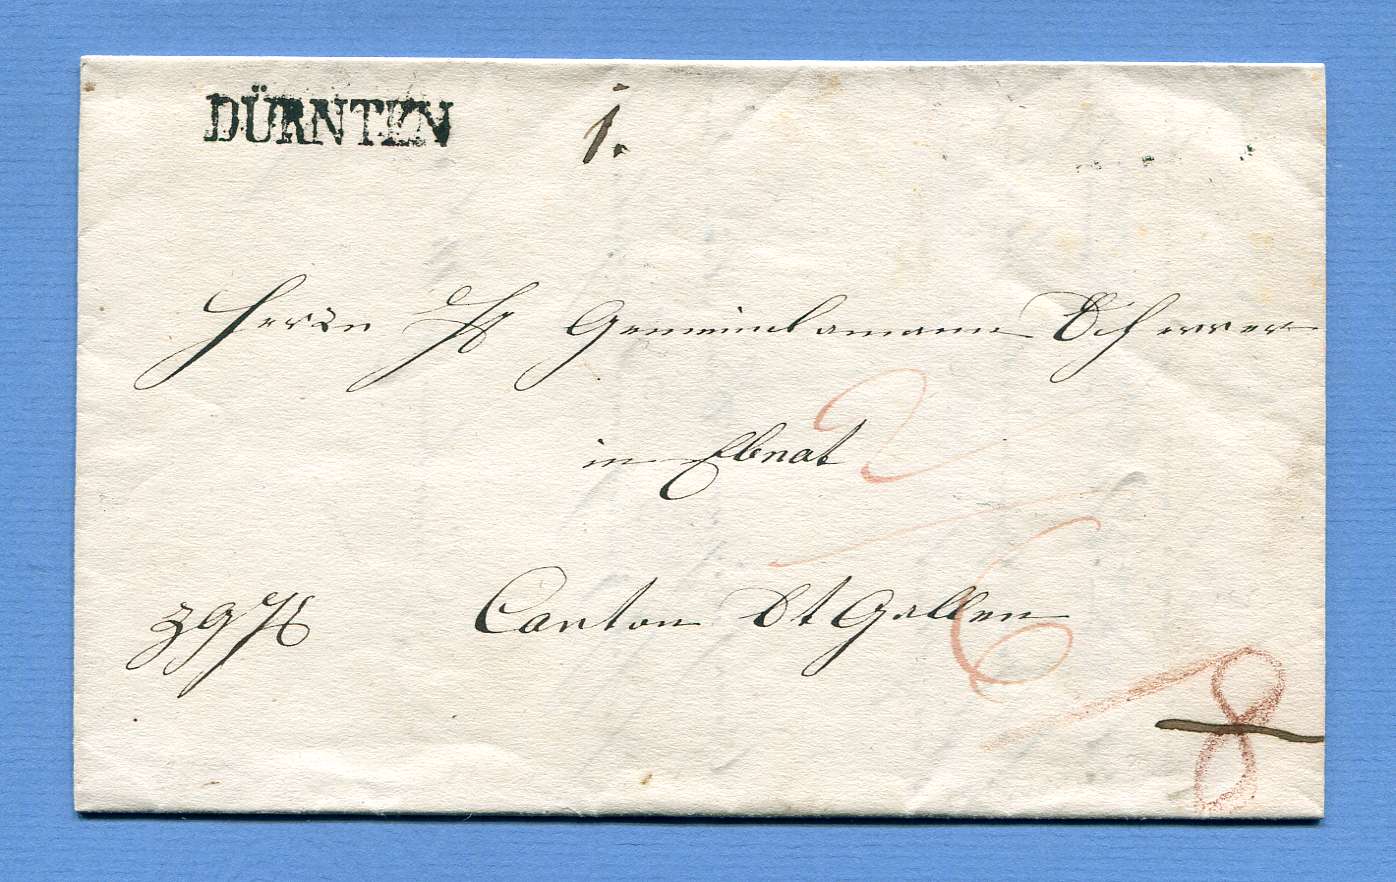 DÜRNTEN
1.
Herrn Gemeindamann Scherrer
in Ebnat
2
Canton St Gallen
6
8